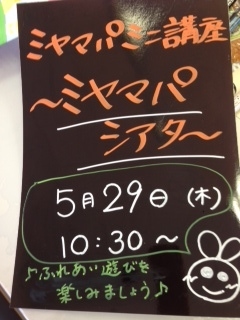 ミヤマパミニ講座
～ミヤマパ
シアタ～
5月29日(木)
10:30～
♪ふれあい遊びを
楽しみましょう♪